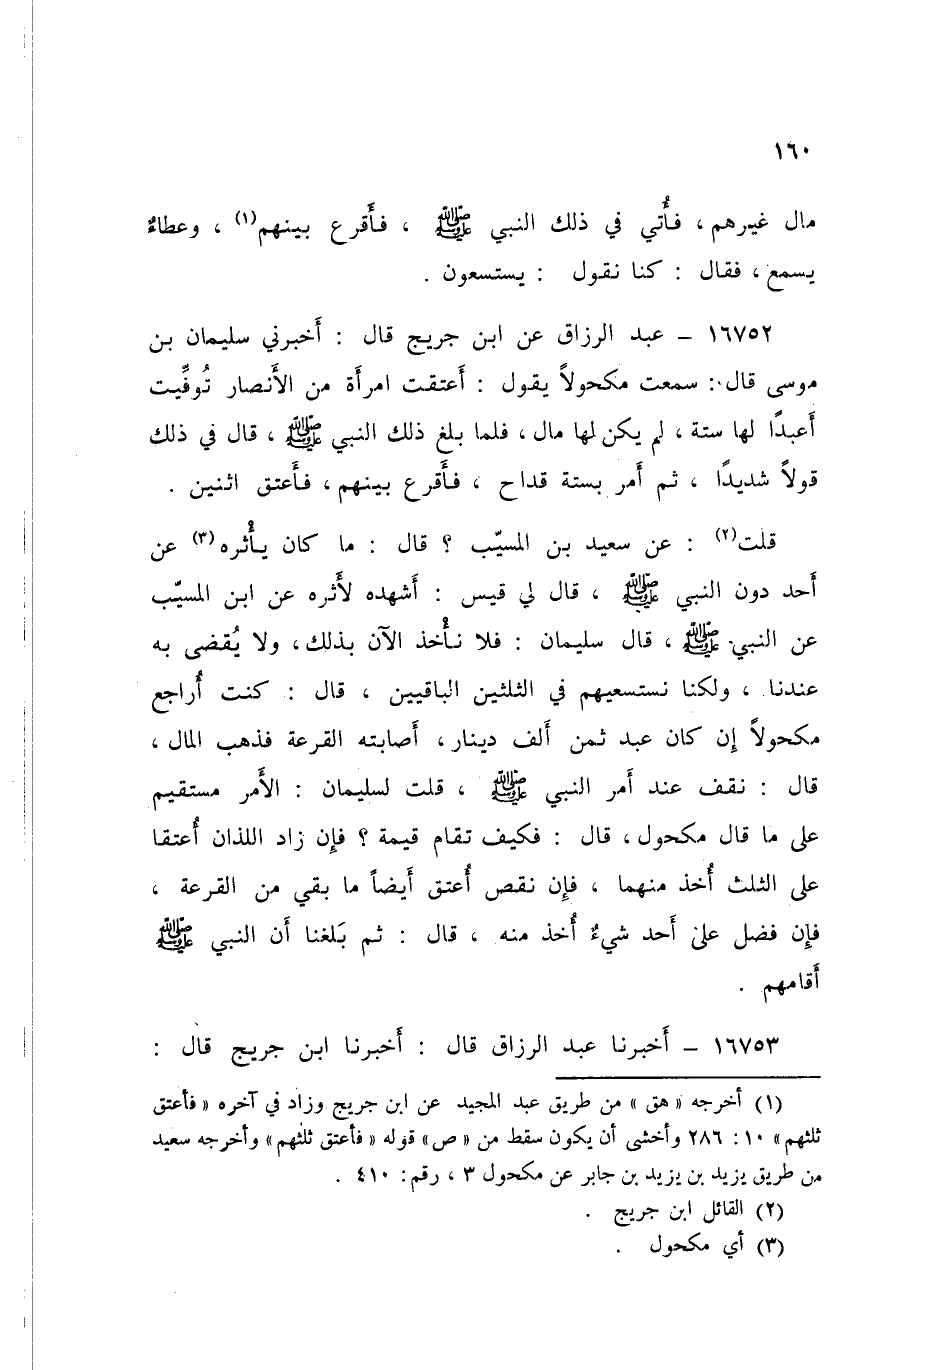 ١٦٠
مال غيرهم ، فأُتي في ذلك النبي ﷺ ، فأَقرع بينهم(١) ، وعطاءٌ
يسمع ، فقال : كنا نقول : يستسعون .
١٦٧٥٢ ـ عبد الرزاق عن ابن جريج قال : أَخبرني سليمان بن
موسى قال : سمعت مكحولاً يقول : أَعتقت امرأَة من الأَنصار تُوفِّيت
أَعبدًا لها ستة ، لم يكن لها مال ، فلما بلغ ذلك النبي ﷺ ، قال في ذلك
قولاً شديدًا ، ثم أَمر بستة قداح ، فأَقرع بينهم ، فأَعتق اثنين .
قلت(٢) : عن سعيد بن المسيّب ؟ قال : ما كان يأْثره(٣) عن
أَحد دون النبي ﷺ ، قال لي قيس : أَشهده لأَثره عن ابن المسيّب
عن النبي ﷺ ، قال سليمان : فلا نأْخذ الآن بذلك ، ولا يُقضى به
عندنا ، ولكنا نستسعيهم في الثلثين الباقيين ، قال : كنت أُراجع
مكحولاً إن كان عبد ثمن أَلف دينار ، أَصابته القرعة فذهب المال ،
قال : نقف عند أَمر النبي ﷺ ، قلت لسليمان : الأَمر مستقيم
على ما قال مكحول ، قال : فكيف تقام قيمة ؟ فإن زاد اللذان أُعتقا
على الثلث أُخذ منهما ، فإن نقص أُعتق أَيضاً ما بقي من القرعة ،
فإن فضل على أَحد شيءٌ أُخذ منه ، قال : ثم بَلغنا أَن النبي ﷺ
أَقامهم .
١٦٧٥٣ ـ أَخبرنا عبد الرزاق قال : أَخبرنا ابن جريج قال :
(١) أخرجه « هق » من طريق عبد المجيد عن ابن جريج وزاد في آخره « فأعتق
ثلثهم » ١٠ : ٢٨٦ وأخشى أن يكون سقط من « ص » قوله « فأعتق ثلثهم » وأخرجه سعيد
من طريق يزيد بن يزيد بن جابر عن مكحول ٣ ، رقم : ٤١٠ .
(٢) القائل ابن جريج .
(٣) أي مكحول .